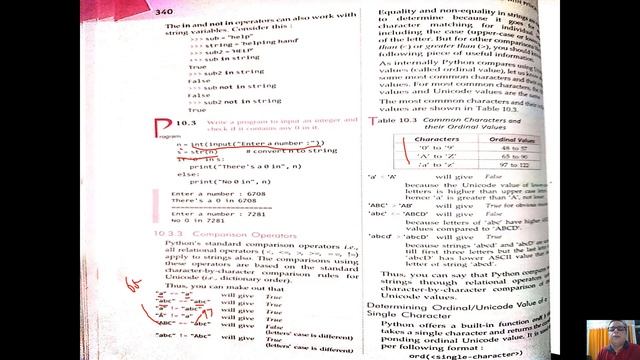 340
The in and not in operators can also work with
string variables. Consider this :
>>> sub = "help"
>>> string = "helping hand"
>>> sub2 = "HELP"
>>> sub in string
True
>>> sub2 in string
False
>>> sub not in string
False
>>> sub2 not in string
True
Program 10.3 Write a program to input an integer and
check if it contains any 0 in it.
n = int(input("Enter a number :"))
s = str(n) # convert n to string
if '0' in s:
print("There's a 0 in", n)
else:
print("No 0 in", n)
Enter a number : 6708
There's a 0 in 6708
Enter a number : 7281
No 0 in 7281
10.3.3 Comparison Operators
Python's standard comparison operators i.e.,
all relational operators (<, <=, >, >=, ==, !=)
apply to strings also. The comparisons using
these operators are based on the standard
character-by-character comparison rules for
Unicode (i.e., dictionary order).
Thus, you can make out that
"a" == "a" will give True
"abc" == "abc" will give True
"a" != "abc" will give True
"A" != "a" will give True
"ABC" == "abc" will give False
(letters' case is different)
"abc" != "Abc" will give True
(letters' case is different)
Equality and non-equality in strings are
to determine because it goes for
character matching for individual
including the case (upper-case or lo
of the letter. But for other comparisons
than (<) or greater than (>), you should
following piece of useful information.
As internally Python compares using
values (called ordinal value), let us
some most common characters and the
values. For most common characters, the
values and Unicode values are the
The most common characters and their
values are shown in Table 10.3.
Table 10.3 Common Characters and
their Ordinal Values
Characters Ordinal Values
'0' to '9' 48 to 57
'A' to 'Z' 65 to 90
'a' to 'z' 97 to 122
'a' < 'A' will give False
because the Unicode value of lower-
letters is higher than upper case letters
hence 'a' is greater than 'A', not lower
'ABC' > 'AB' will give True for obvious
'abc' <= 'ABCD' will give False
because letters of 'abc' have higher
values compared to 'ABCD'.
'abcd' > 'abcD' will give True
because strings 'abcd' and 'abcD' are
till first three letters but the last
'abcD' has lower ASCII value than
letter of string 'abcd'.
Thus, you can say that Python compares
strings through relational operators
character-by-character comparison of
Unicode values.
Determining Ordinal/Unicode Value of a
Single Character
Python offers a built-in function ord( )
takes a single character and returns the
ponding ordinal Unicode value. It
per following format :
ord(<single-character>)